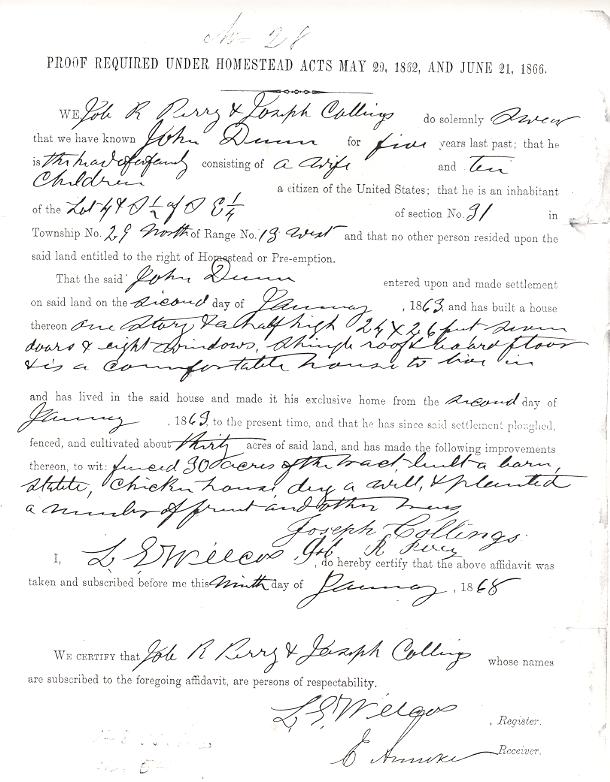 No 28
PROOF REQUIRED UNDER HOMESTEAD ACTS MAY 20, 1862, AND JUNE 21, 1866.
WE, Job R Perry & Joseph Collings do solemnly Swear
that we have known John Dunn for five years last past; that he
is the head of a family consisting of a Wife and ten
Children a citizen of the United States; that he is an inhabitant
of the Lot 4 & S ½ of S E ¼ of section No. 31 in
Township No. 29 North of Range No. 13 West and that no other person resided upon the
said land entitled to the right of Homestead or Pre-emption.
That the said John Dunn entered upon and made settlement
on said land on the second day of January , 1863, and has built a house
thereon one story & a half high 24 x 26 feet seven
doors & eight windows, Shingle roof & board floor
& is a comfortable house to live in
and has lived in the said house and made it his exclusive home from the second day of
January , 1863, to the present time, and that he has since said settlement ploughed,
fenced, and cultivated about thirty acres of said land, and has made the following improvements
thereon, to wit: fenced 30 acres of the tract built a barn,
stable, Chicken house, dug a well, & planted
a number of fruit and other trees
Joseph Collings
Job R Perry
I, L. G. Wilcox , do hereby certify that the above affidavit was
taken and subscribed before me this Ninth day of January , 1868
WE CERTIFY that Job R Perry & Joseph Collings whose names
are subscribed to the foregoing affidavit, are persons of respectability.
L. G. Wilcox , Register.
Receiver.